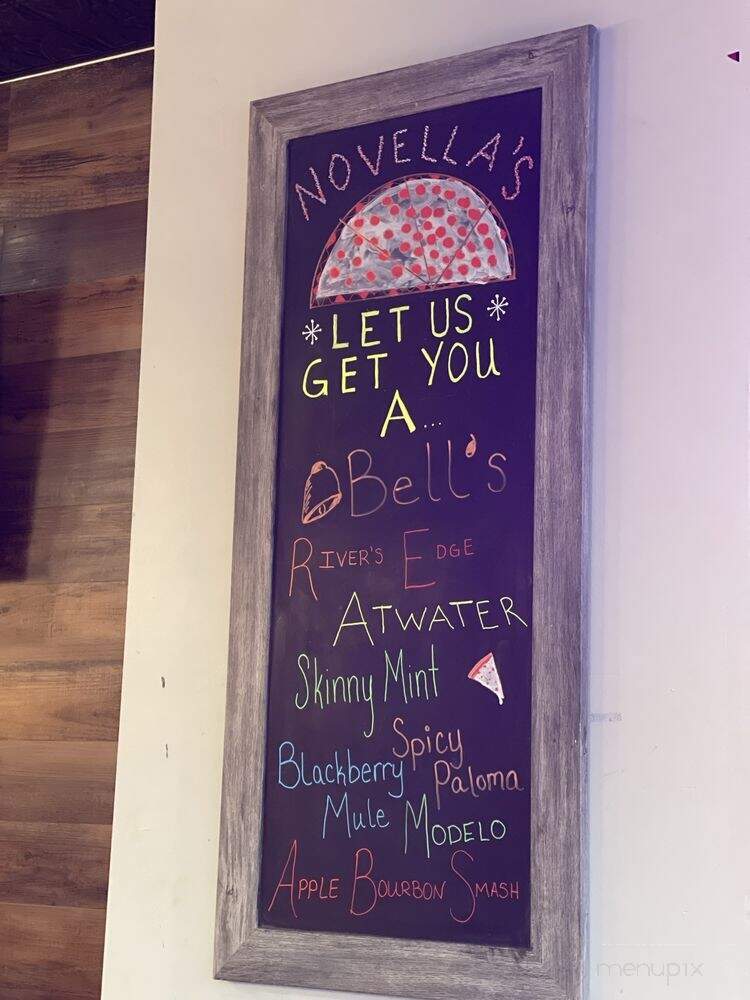 NOVELLA'S
*LET US*
GET YOU
A...
Bell's
RIVER'S EDGE
ATWATER
Skinny Mint
Spicy
Paloma
Blackberry
Mule
MODELO
APPLE BOURBON SMASH
menupix